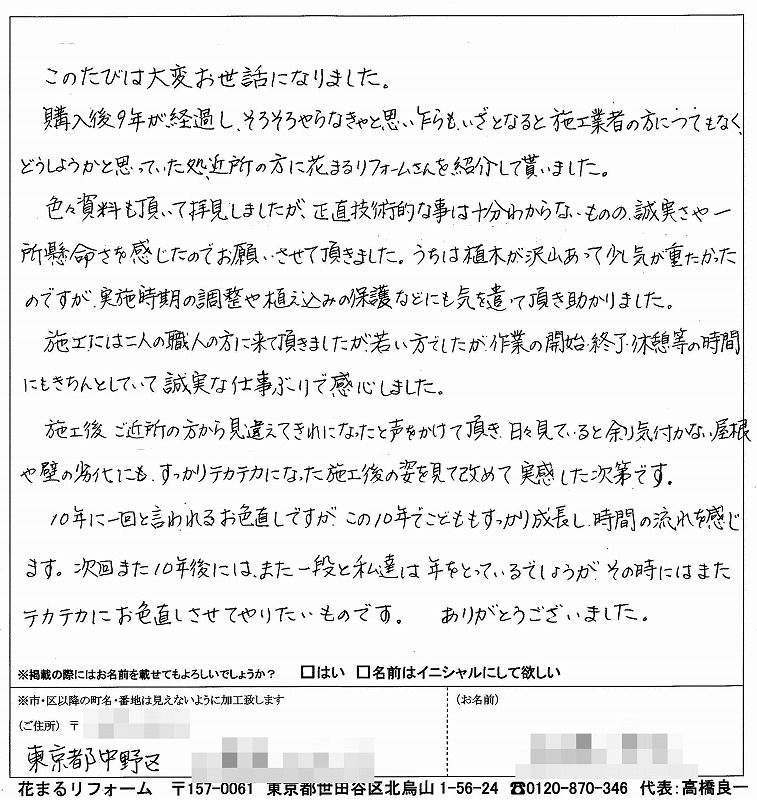 このたびは大変お世話になりました。
購入後9年が経過し、そろそろやらなきゃと思い乍らも、いざとなると施工業者の方につてもなく、
どうしようかと思っていた処、近所の方に花まるリフォームさんを紹介して貰いました。
色々資料も頂いて拝見しましたが、正直技術的な事は十分わからないものの、誠実さや一
所懸命さを感じたのでお願いさせて頂きました。うちは植木が沢山あって少し気が重たかった
のですが、実施時期の調整や植え込みの保護などにも気を遣って頂き助かりました。
施工には二人の職人の方に来て頂きましたが、若い方でしたが、作業の開始、終了、休憩等の時間
にもきちんとしていて誠実な仕事ぶりで感心しました。
施工後、ご近所の方から見違えてきれいになったと声をかけて頂き、日々見ていると余り気付かない屋根
や壁の劣化にも、すっかりテカテカになった施工後の姿を見て改めて実感した次第です。
10年に一回と言われるお色直しですが、この10年でこどももすっかり成長し、時間の流れを感じ
ます。次回また10年後には、また一段と私達は年をとっているでしょうが、その時にはまた
テカテカにお色直しさせてやりたいものです。 ありがとうございました。
※掲載の際にはお名前を載せてもよろしいでしょうか？ □はい □名前はイニシャルにして欲しい
※市・区以降の町名・番地は見えないように加工致します
(お名前)
(ご住所) 〒
東京都中野区
花まるリフォーム 〒157-0061 東京都世田谷区北烏山1-56-24 ☎0120-870-346 代表:高橋良一